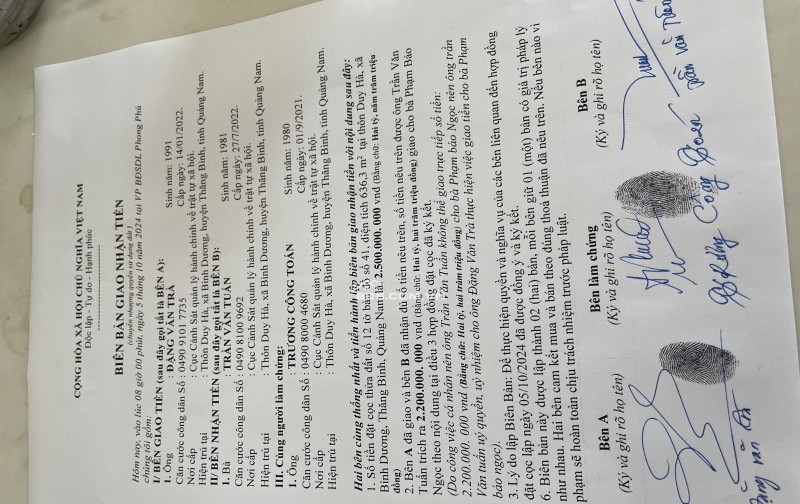 CỘNG HÒA XÃ HỘI CHỦ NGHĨA VIỆT NAM
Độc lập - Tự do - Hạnh phúc
BIÊN BẢN GIAO NHẬN TIỀN
(chuyển nhượng quyền sử dụng đất)
Hôm nay, vào lúc 08 giờ 00 phút, ngày 5 tháng 10 năm 2024 tại VP BĐSDL Phong Phú
chúng tôi gồm:
I/ BÊN GIAO TIỀN (sau đây gọi tắt là BÊN A):
1. Ông : ĐẶNG VĂN TRÀ Sinh năm: 1991
Căn cước công dân Số : 0490 9101 7735 Cấp ngày: 14/01/2022.
Nơi cấp : Cục Cảnh Sát quản lý hành chính về trật tự xã hội.
Hiện trú tại : Thôn Duy Hà, xã Bình Dương, huyện Thăng Bình, tỉnh Quảng Nam.
II/ BÊN NHẬN TIỀN (sau đây gọi tắt là BÊN B):
1. Bà : TRẦN VĂN TUẤN Sinh năm: 1981
Căn cước công dân Số : 0490 8100 9692 Cấp ngày: 27/7/2022.
Nơi cấp : Cục Cảnh Sát quản lý hành chính về trật tự xã hội.
Hiện trú tại : Thôn Duy Hà, xã Bình Dương, huyện Thăng Bình, tỉnh Quảng Nam.
III. Cùng người làm chứng:
1. Ông : TRƯƠNG CÔNG TOÁN Sinh năm: 1980
Căn cước công dân Số : 0490 8000 4680 Cấp ngày: 01/9/2021.
Nơi cấp : Cục Cảnh Sát quản lý hành chính về trật tự xã hội.
Hiện trú tại : Thôn Duy Hà, xã Bình Dương, huyện Thăng Bình, tỉnh Quảng Nam.
Hai bên cùng thống nhất và tiến hành lập biên bản giao nhận tiền với nội dung sau đây:
1. Số tiền đặt cọc thửa đất số 12 tờ bản đồ số 41, diện tích 636,3 m² tại thôn Duy Hà, xã
Bình Dương, Thăng Bình, Quảng Nam là: 2.500.000. 000 vnd (Bằng chữ: Hai tỷ, năm trăm triệu
đồng)
2. Bên A đã giao và bên B đã nhận đủ số tiền nêu trên, số tiền nêu trên được ông Trần Văn
Tuấn trích ra 2.200.000. 000 vnd (Bằng chữ: Hai tỷ, hai trăm triệu đồng) giao cho bà Phạm Bảo
Ngọc theo nội dung tại điều 3 hợp đồng đặt cọc đã ký kết.
(Do công việc cá nhân nên ông Trần Văn Tuấn không thể giao trực tiếp số tiền:
2.200.000. 000 vnd (Bằng chữ: Hai tỷ, hai trăm triệu đồng) cho bà Phạm bảo Ngọc nên ông trần
Văn tuấn uỷ quyền, uỷ nhiệm cho ông Đặng Văn Trà thực hiện việc giao tiền cho bà Phạm
bảo ngọc).
3. Lý do lập Biên Bản: Để thực hiện quyền và nghĩa vụ của các bên liên quan đến hợp đồng
đặt cọc lập ngày 05/10/2024 đã được đồng ý và ký kết.
6. Biên bản này được lập thành 02 (hai) bản, mỗi bên giữ 01 (một) bản có giá trị pháp lý
như nhau. Hai bên cam kết mua và bán theo đúng thoả thuận đã nêu trên. Nếu bên nào vi
phạm sẽ hoàn toàn chịu trách nhiệm trước pháp luật.
Bên A Bên làm chứng Bên B
(Ký và ghi rõ họ tên) (Ký và ghi rõ họ tên) (Ký và ghi rõ họ tên)
Đặng văn trà Công Trần Văn Tuấn